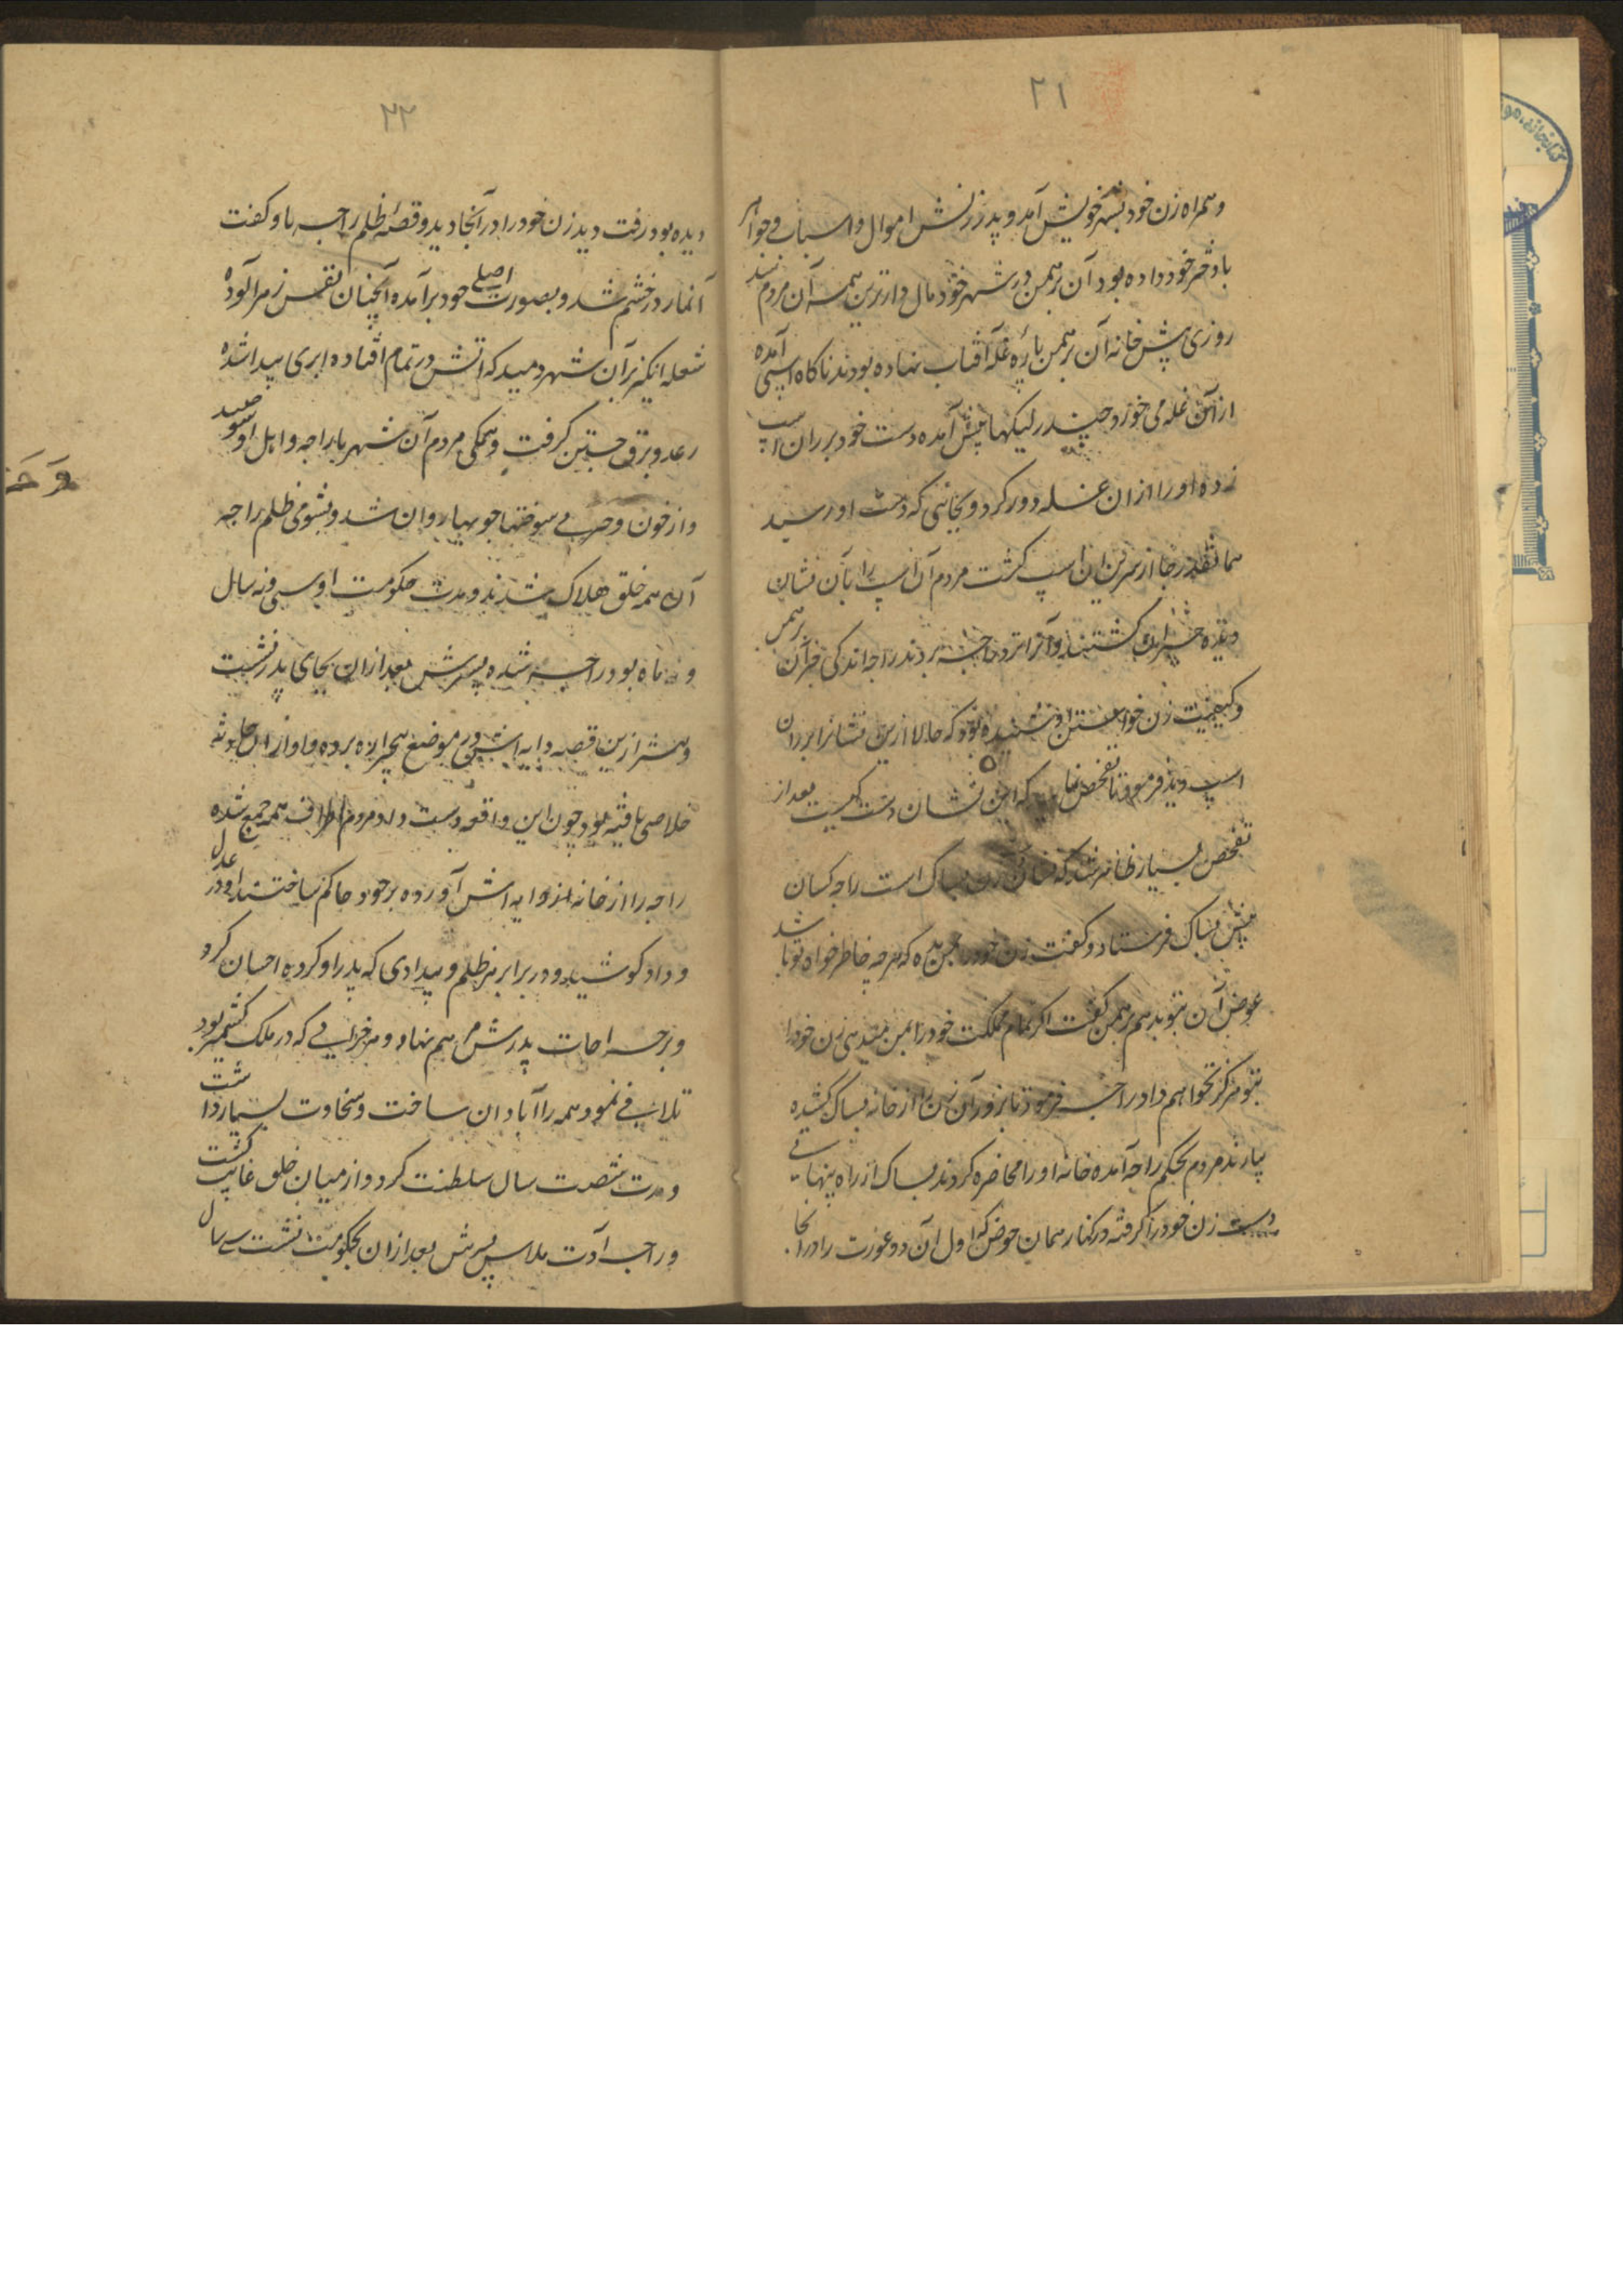 ۲۱
و همراه زن خود بشهر خویش آمد و پدر زنش اموال و اسبابی و جواهر
با دختر خود داده بود آن برهمن در شهر خود مال دارترین همه آن مردم شد
روزی پیش خانه آن برهمن پاره غله آفتاب نهاده بودند ناگاه اسپی آمده
ازان غله می خورد چندر لیکها پیش آمده دست خود بر ران اسپ
زده او را ازان غله دور کرد و بجائی که دست او رسید
همانقدر جا از سرین آن اسپ گشت مردم آن اسپ را بآن نشان
دیده حیران گشتند و آنرا نزد راجه بردند راجه اندکی خبر آن برهمن
و کیفیت زن خواستن او شنیده بود که حالا ازین نشانرا بر ران
اسپ دید فرمود تا تفحص نمایند که این نشان دست کیست بعد از
تفحص بسیار ظاهر شد که نشان زن بساک است راجه کسان
پیش بساک فرستاد و گفت زن خود را بمن بده که هرچه خاطر خواه تو باشد
عوض آن بتو بدهم برهمن گفت اگر تمام مملکت خود را بمن میدهی زن خود را
بتو هرگز نخواهم داد راجه فرمود تا بزور آن زن را از خانه بساک کشیده
بیارند مردم بحکم راجه آمده خانه او را محاضره کردند بساک از راه پنهانی
دست زن خود را گرفته در کنار همان حوض که اول آن دو عورت را در آنجا
۲۲
دیده بود رفت دید زن خود را در آنجا دید و قصه ظلم راجه باو گفت
آنمار در خشم شد و بصورت اصلی خود برآمده آنچنان نفس زهرآلوده
شعله انگیز بر آن شهر دمید که آتش در تمام افتاده ابری پیدا شده
رعد و برق جستن گرفت و همگی مردم آن شهر با راجه و اهل او سوختند
و از خون و چربی سوختها جویها روان شد و بشومی ظلم راجه
آن همه خلق هلاک شدند و مدت حکومت او سی و نه سال
و نه ماه بود راجه سده پسرش بعد ازان بجای پدر نشست
و پیشتر ازین قصه دایه اش در موضع بیجباره برده و او ازان حادثه
خلاصی یافته بود چون این واقعه دست داد مردم اطراف همه جمع شده
راجه را از خانه دایه اش آورده بر خود حاکم ساختند او در عدل
و داد کوشید و در برابر هر ظلم و بیدادی که پدر او کرده احسان کرد
و بر جراحات پدرش مرهم نهاد و هر خرابی که در ملک کشمیر بود
تلافی نمود و همه را آبادان ساخت و سخاوت بسیار داشت
و مدت شصت سال سلطنت کرد و از میان خلق غایب گشت
و راجه آدت ملاس پسرش بعد ازان بحکومت نشست سی سال